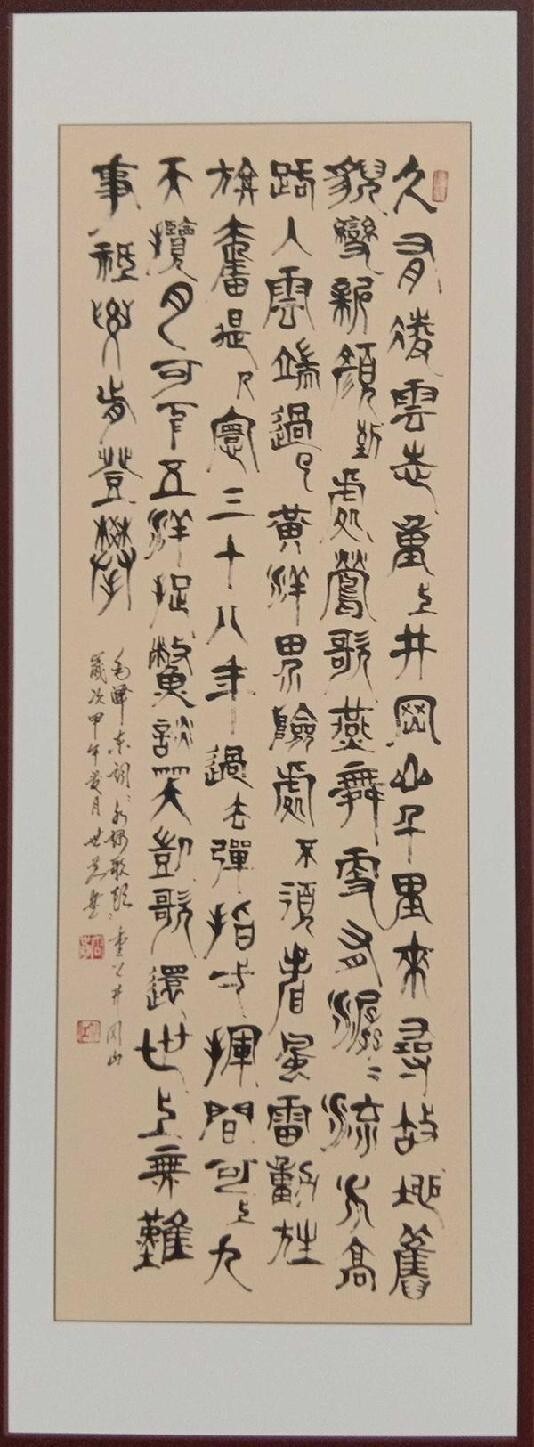 久有凌雲志重上井岡山千里來尋故地舊
貌變新顏到處鶯歌燕舞更有潺〻流水高
路入雲端過了黃洋界險處不須看風雷動旌
旗奮是人寰三十八年過去彈指一揮間可上九
天攬月可下五洋捉鱉談笑凱歌還世上無難
事祗要肯登攀
毛澤東詞水調歌頭重上井岡山
歲次甲午月世書